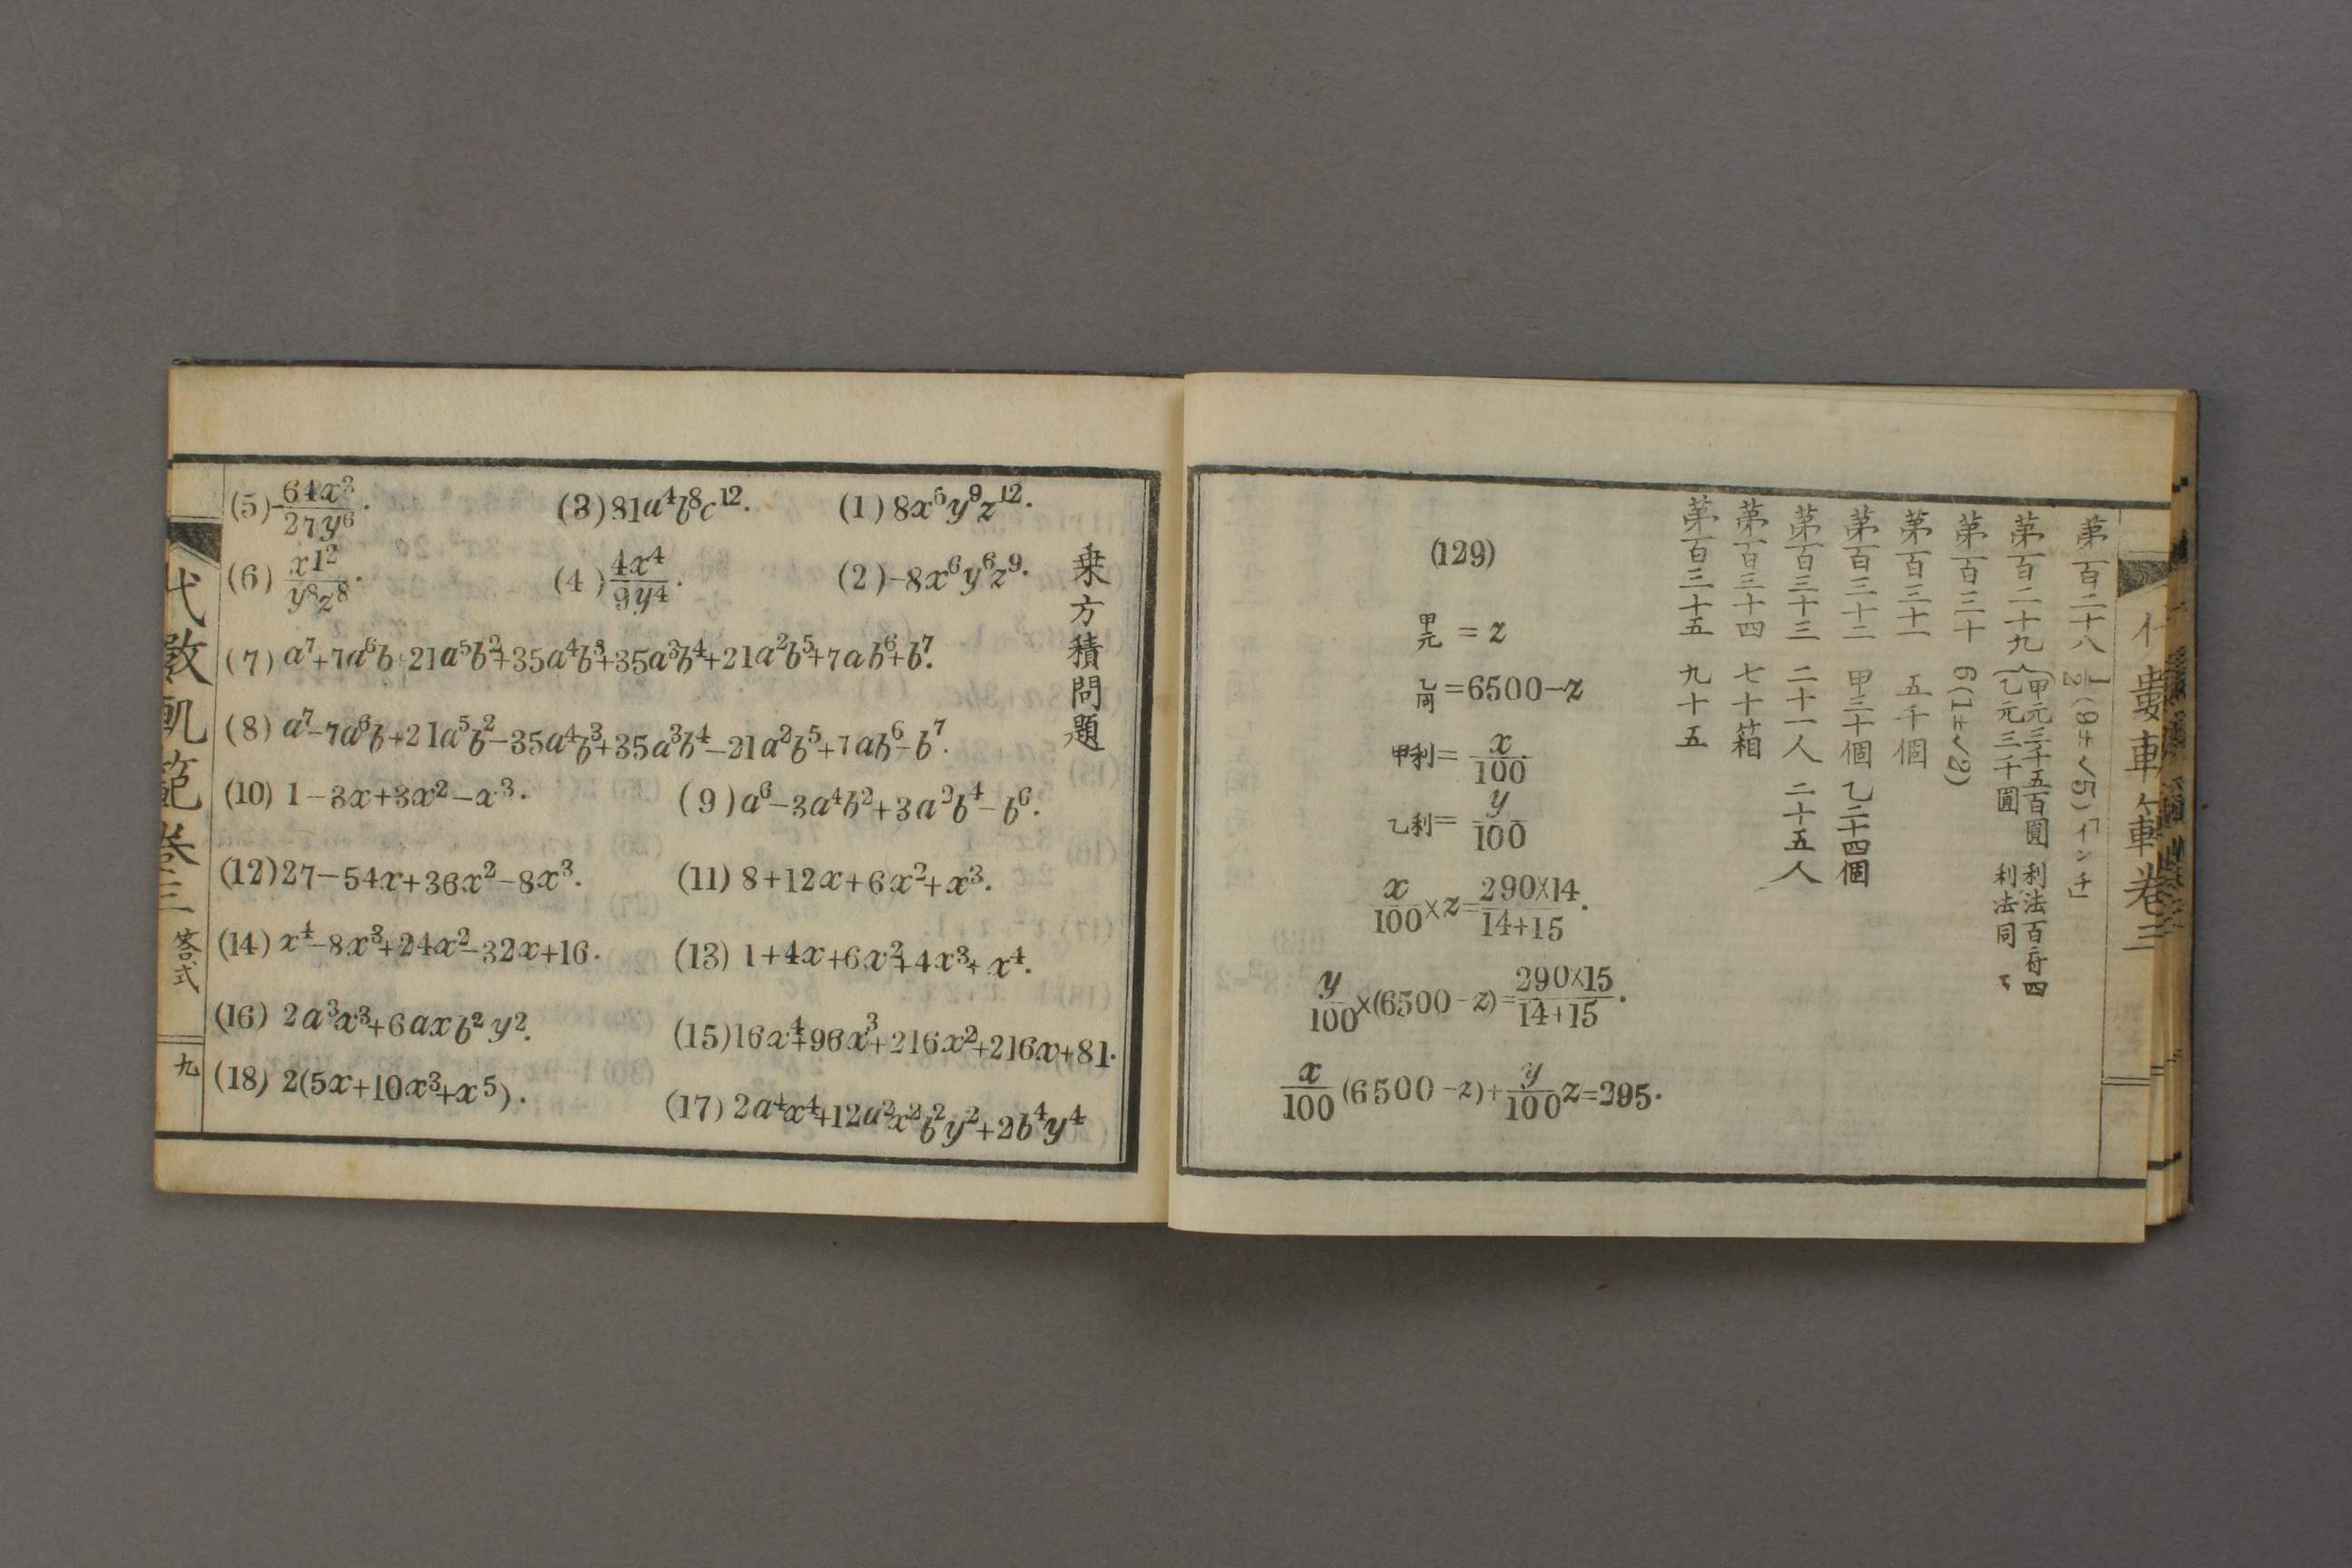 第百二十八 1/2(9±√5)「インチ」
第百二十九 {甲元三千五百圓 利法百分四
乙元三千圓 利法同
第百三十 6(1±√2)
第百三十一 五千個
第百三十二 甲三十個 乙二十四個
第百三十三 二十一人 二十五人
第百三十四 七十箱
第百三十五 九十五
(129)
甲元 = z
乙同 =6500-z
甲利= x/100
乙利= y/100
x/100×z=290×14/14+15.
y/100×(6500-z)=290×15/14+15.
x/100(6500-z)+y/100z=295.
卷三
乗方積問題
(1) 8x⁶y⁹z¹².
(2) -8x⁶y⁶z⁹.
(3) 81a⁴b⁸c¹².
(4) 4x⁴/9y⁴.
(5) -64x³/27y⁶.
(6) x1²/y⁸z⁸.
(7) a⁷+7a⁶b+21a⁵b²+35a⁴b³+35a³b⁴+21a²b⁵+7ab⁶+b⁷.
(8) a⁷-7a⁶b+21a⁵b²-35a⁴b³+35a³b⁴-21a²b⁵+7ab⁶-b⁷.
(9) a⁶-3a⁴b²+3a²b⁴-b⁶.
(10) 1-3x+3x²-x³.
(11) 8+12x+6x²+x³.
(12) 27-54x+36x²-8x³.
(13) 1+4x+6x²+4x³+x⁴.
(14) x⁴-8x³+24x²-32x+16.
(15) 16x⁴+96x³+216x²+216x+81.
(16) 2a³x³+6axb²y².
(17) 2a⁴x⁴+12a²x²b²y²+2b⁴y⁴
(18) 2(5x+10x³+x⁵).
代数軌範卷三 答式 九